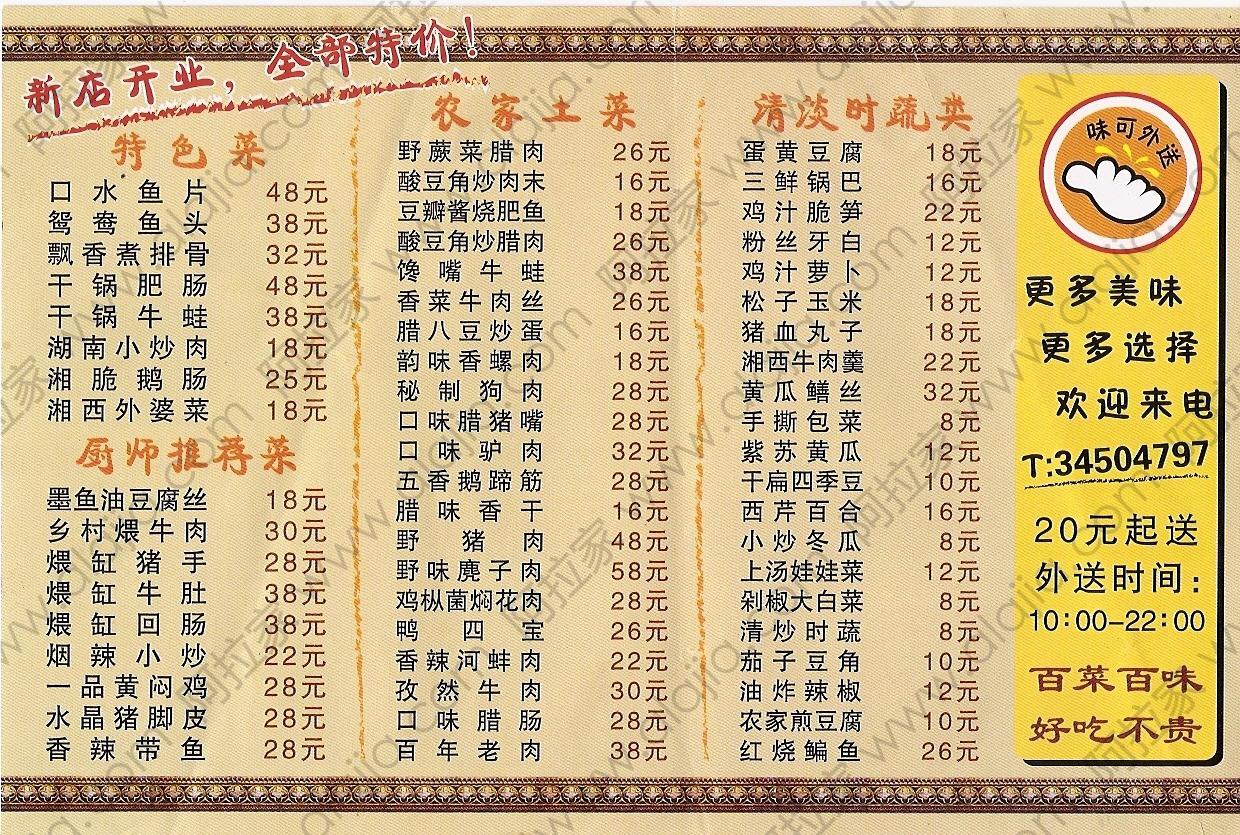 新店开业，全部特价！
特色菜
口水鱼片 48元
鸳鸯鱼头 38元
飘香煮排骨 32元
干锅肥肠 48元
干锅牛蛙 38元
湖南小炒肉 18元
湘脆鹅肠 25元
湘西外婆菜 18元
厨师推荐菜
墨鱼油豆腐丝 18元
乡村煨牛肉 30元
煨缸猪手 28元
煨缸牛肚 38元
煨缸回肠 38元
烟辣小炒 22元
一品黄闷鸡 28元
水晶猪脚皮 28元
香辣带鱼 28元
农家土菜
野蕨菜腊肉 26元
酸豆角炒肉末 16元
豆瓣酱烧肥鱼 18元
酸豆角炒腊肉 26元
馋嘴牛蛙 38元
香菜牛肉丝 26元
腊八豆炒蛋 16元
韵味香螺肉 18元
秘制狗肉 28元
口味腊猪嘴 28元
口味驴肉 32元
五香鹅蹄筋 28元
腊味香干 16元
野猪肉 48元
野味麂子肉 58元
鸡枞菌焖花肉 28元
鸭四宝 26元
香辣河蚌肉 22元
孜然牛肉 30元
口味腊肠 28元
百年老肉 38元
清淡时蔬类
蛋黄豆腐 18元
三鲜锅巴 16元
鸡汁脆笋 22元
粉丝牙白 12元
鸡汁萝卜 12元
松子玉米 18元
猪血丸子 18元
湘西牛肉羹 22元
黄瓜鳝丝 32元
手撕包菜 8元
紫苏黄瓜 12元
干扁四季豆 10元
西芹百合 16元
小炒冬瓜 8元
上汤娃娃菜 12元
剁椒大白菜 8元
清炒时蔬 8元
茄子豆角 10元
油炸辣椒 12元
农家煎豆腐 10元
红烧鳊鱼 26元
味可外送
更多美味
更多选择
欢迎来电
T:34504797
20元起送
外送时间：
10:00-22:00
百菜百味
好吃不贵
阿拉家 www.alajia.com